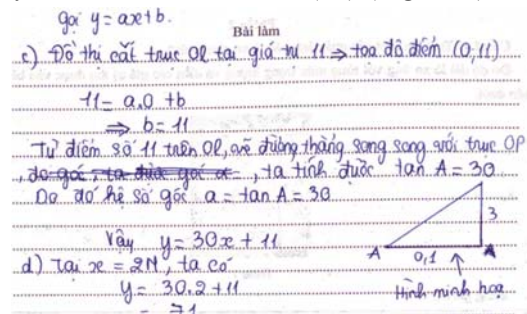 gọi y = ax+b.
Bài làm
c) Đồ thị cắt trục OQ tại giá trị 11 ⇒ toạ độ điểm (0,11)
11 = a.0 + b
⇒ b = 11
Từ điểm số 11 trên OQ, vẽ đường thẳng song song với trục OP
, do góc, ta đưa góc α = , ta tính được tan A = 30
Do đó hệ số góc a = tan A = 30
3
Vậy y = 30x + 11
A A
0,1
d) Tại x = 2N, ta có
y = 30.2 + 11
Hình minh hoạ
= 71